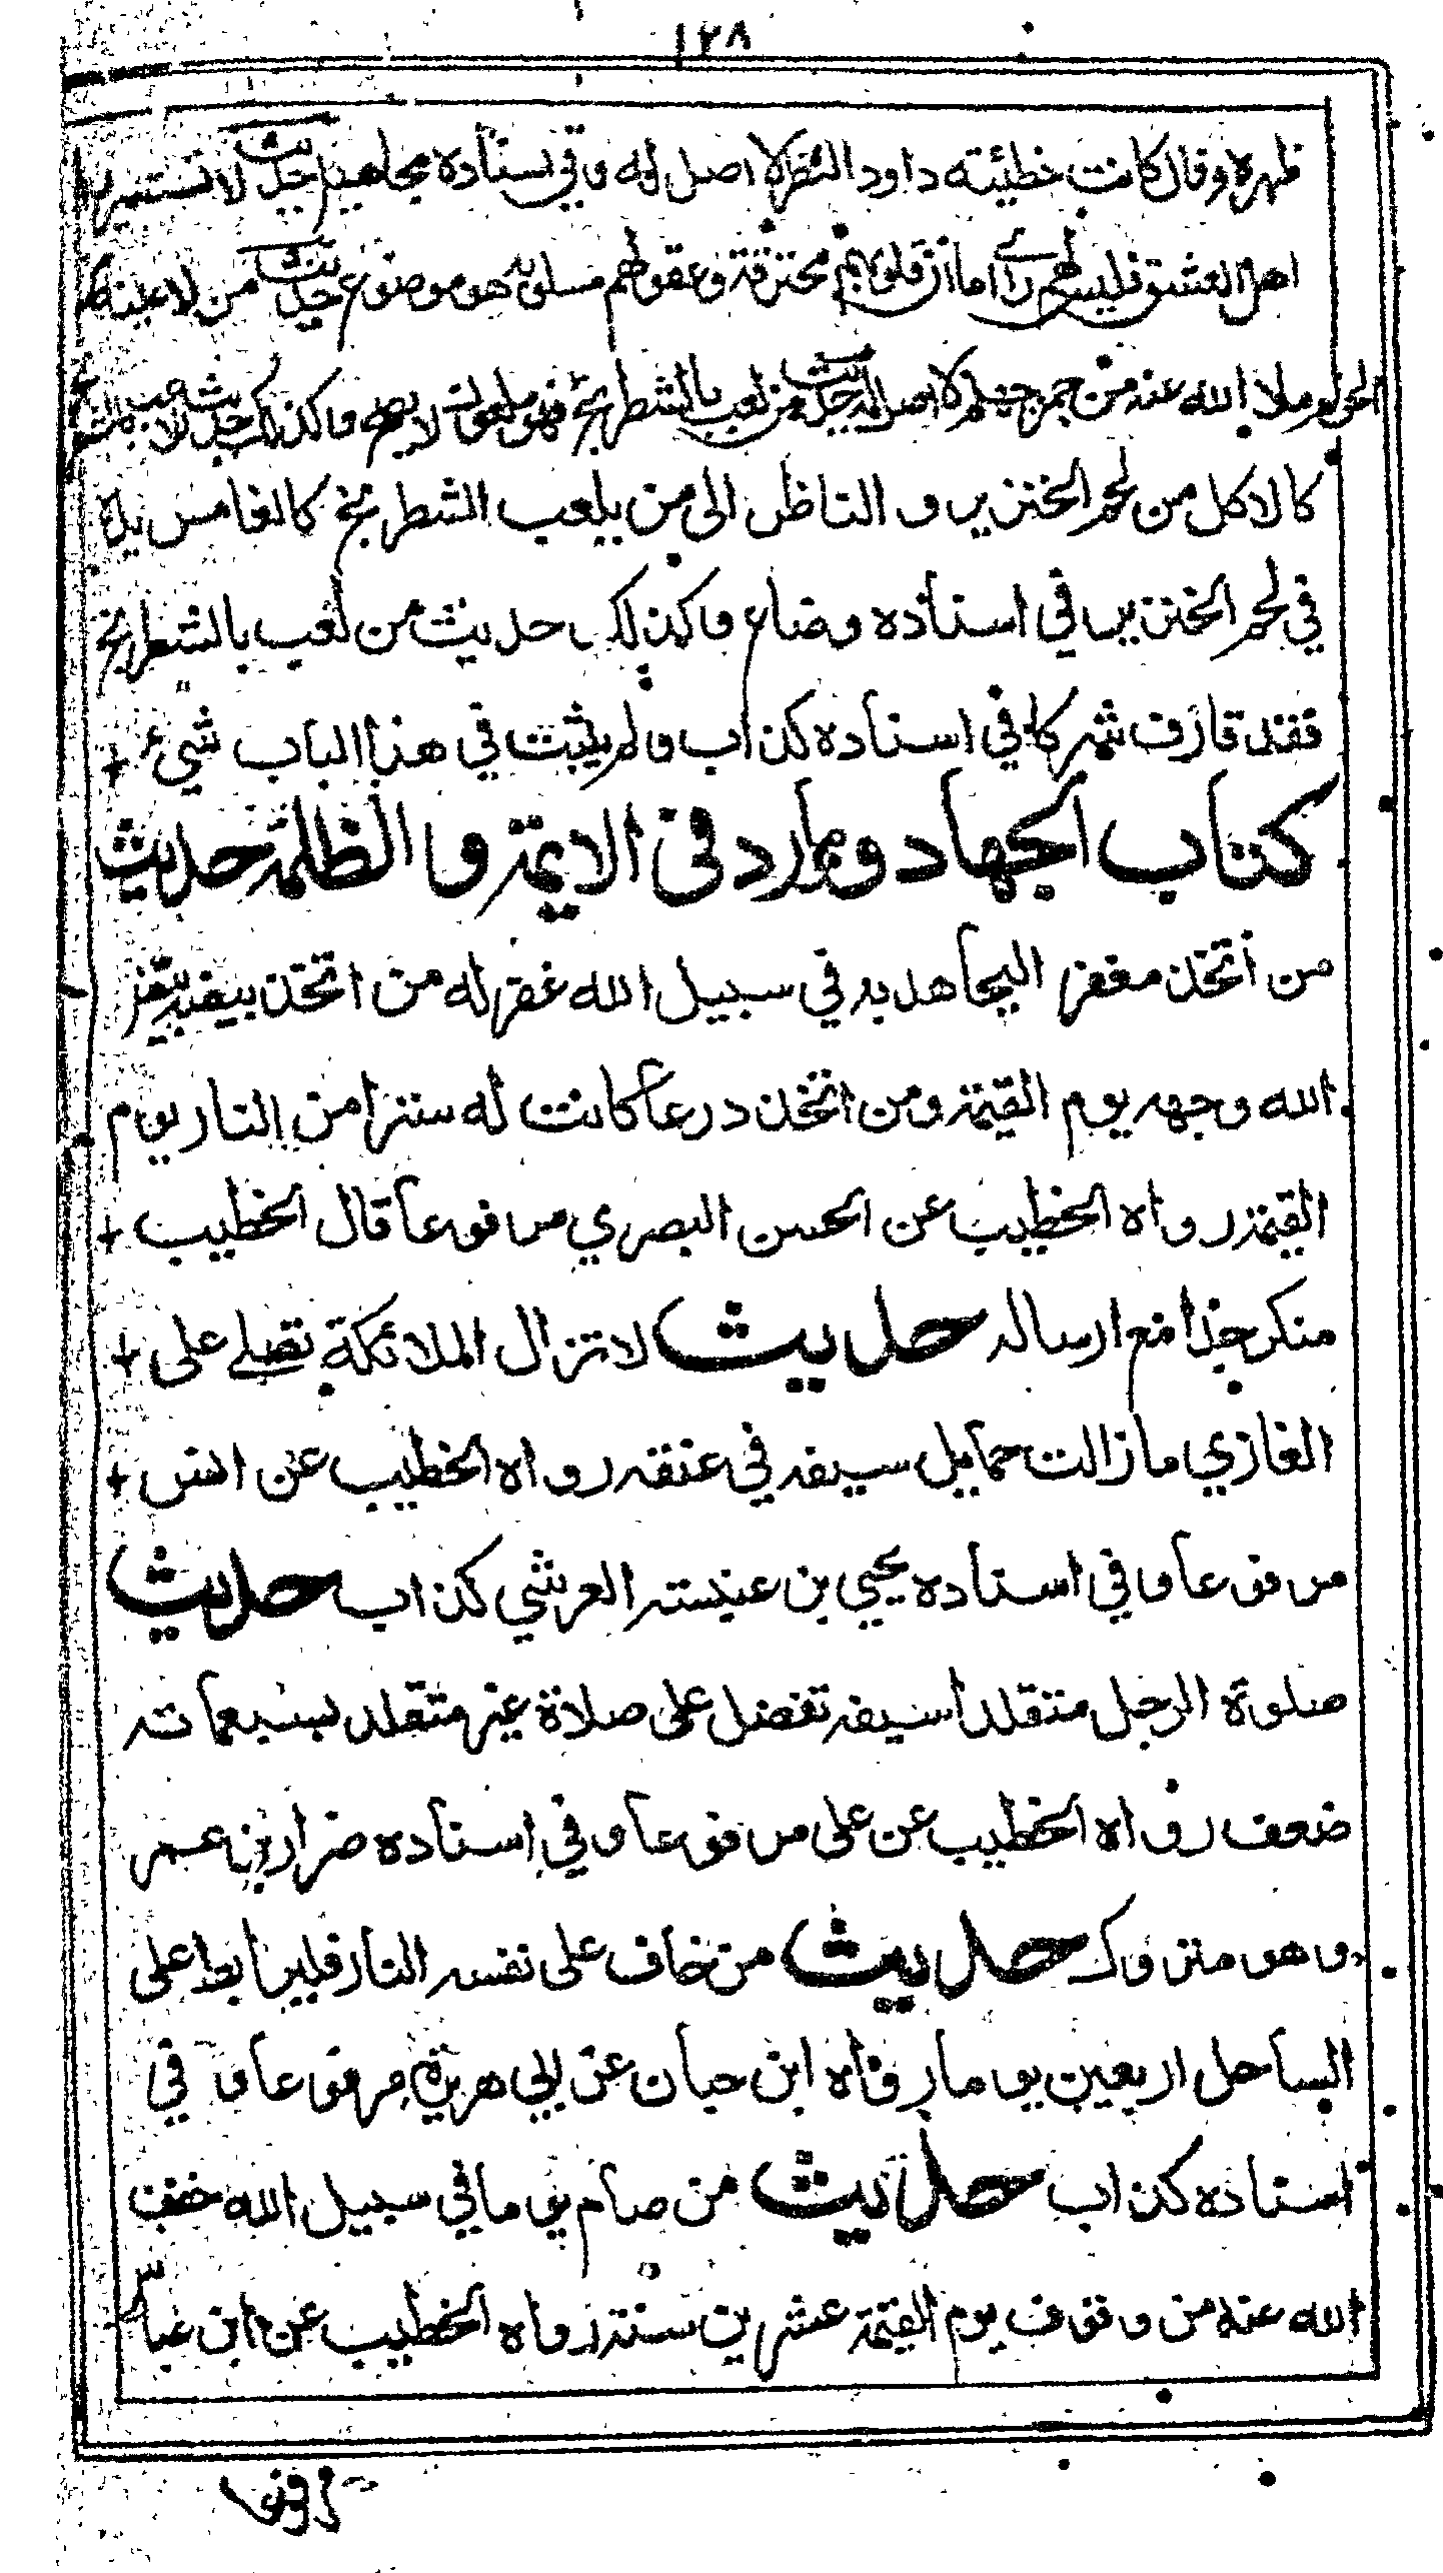 ١٢٨
ظهره وقال كانت خطيئة داود النظر لا اصل له وفي اسناده مجاهيل حديث لا تستشيروا
اهل العشق فليس لهم راي اما ان قلوبهم محترقة وعقولهم مسلوبة هو موضوع حديث من لاعينه من
الحرام ملا الله عينه من جمر جهنم لا اصل له حديث من لعب بالشطرنج فهو ملعون لا يصح وكذلك حديث اللاعب بالشطرنج
كالاكل من لحم الخنزير و الناظر الى من يلعب الشطرنج كالغامس يده
في لحم الخنزير في اسناده وضاع وكذلك حديث من لعب بالشطرنج
فقد قارف شركا في اسناده كذاب ولم يثبت في هذا الباب شيء
كتاب الجهاد وما ورد في الايمة و الظلمة حديث
من اتخذ مغفرا ليجاهد به في سبيل الله غفر له من اتخذ بيضة بيض
الله وجهه يوم القيمة ومن اتخذ درعا كانت له سترا من النار يوم
القيمة رواه الخطيب عن الحسن البصري مرفوعا قال الخطيب
منكر جدا مع ارساله حديث لا تزال الملائكة تصلے على
الغازي ما زالت حمايل سيفه في عنقه رواه الخطيب عن انس
مرفوعا وفي اسناده يحيي بن عنبسة القرشي كذاب حديث
صلوة الرجل متقلدا سيفه تفضل على صلاة غير متقلد بسبعماته
ضعف رواه الخطيب عن على مرفوعا وفي اسناده ضرار بن عمر
وهو متروك حديث من خاف على نفسه النار فليرابط على
الساحل اربعين يوما رواه ابن حبان عن ابي هريرة مرفوعا و في
اسناده كذاب حديث من صام يوما في سبيل الله خفف
الله عنه من وقوف يوم القيمة عشرين سنة رواه الخطيب عن ابن عباس
وفي